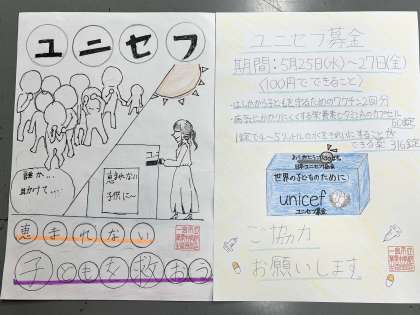 ユニセフ
誰か…
助けて…
恵まれない
子供に〜
ユニ
恵まれない
子どもを救おう
ユニセフ募金
期間:5月25日(水)〜27日(金)
〈100円でできること〉
・はしかから子どもを守るためのワクチン2回分
・病気にかかりにくくする栄養素ビタミンAのカプセル
60錠
・1錠で4〜5リットルの水をきれいにすることが
できる薬 316錠
ありがとう
日本ユニセフ協会
世界の子どものために
unicef
ユニセフ募金
ご協力
お願いします